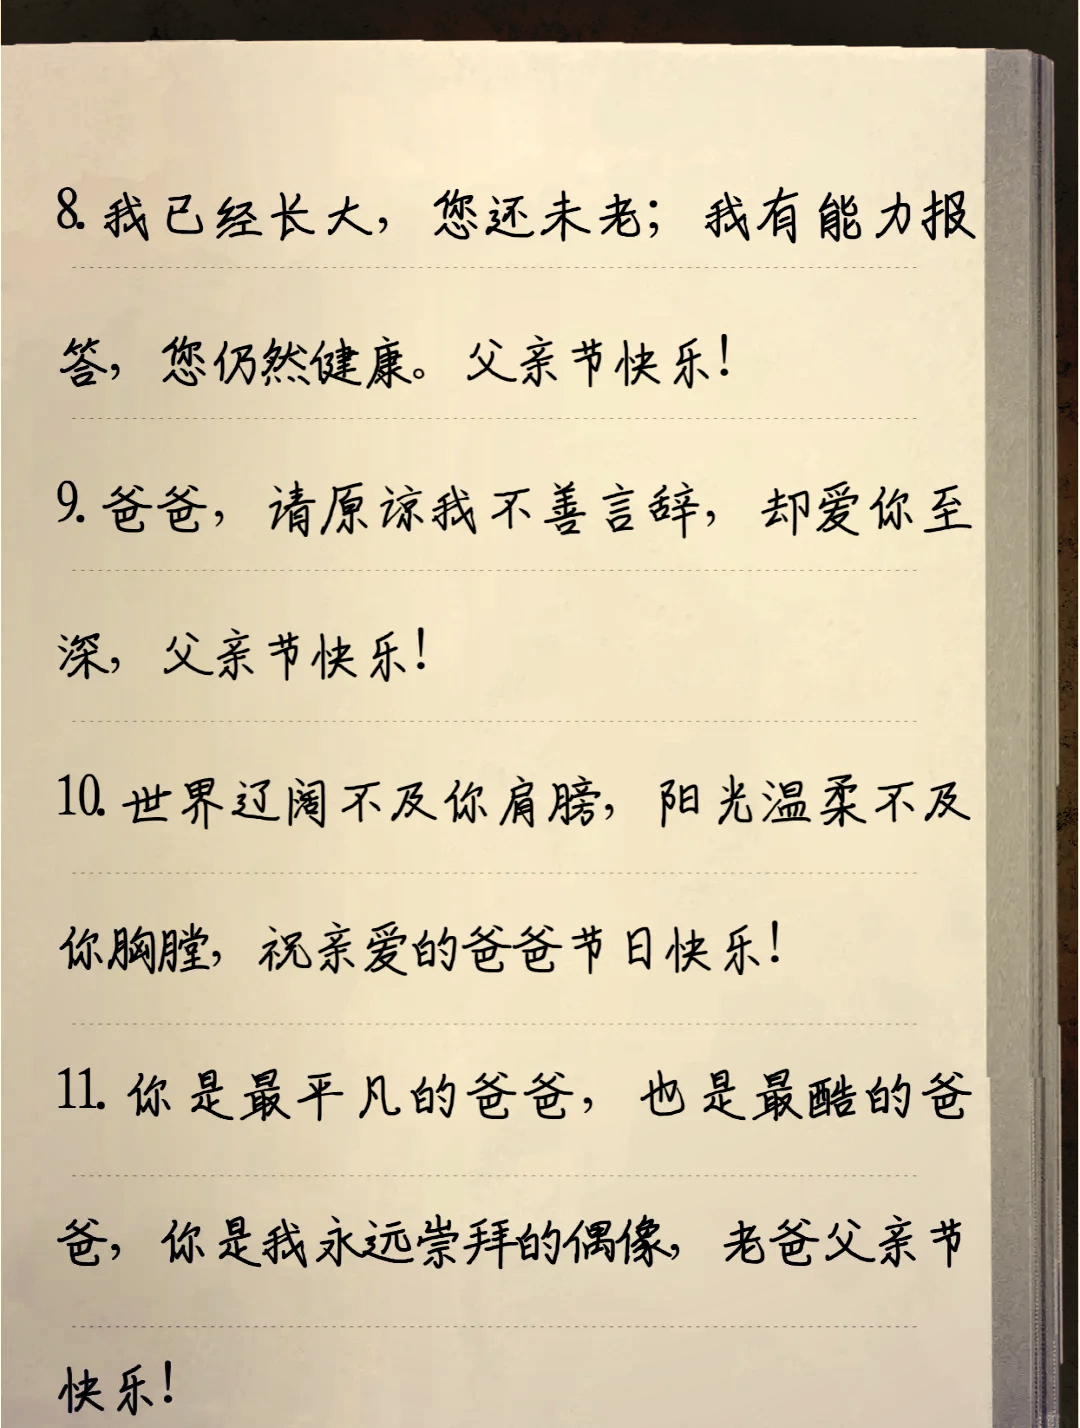 8. 我已经长大，您还未老；我有能力报
答，您仍然健康。父亲节快乐！
9. 爸爸，请原谅我不善言辞，却爱你至
深，父亲节快乐！
10. 世界辽阔不及你肩膀，阳光温柔不及
你胸膛，祝亲爱的爸爸节日快乐！
11. 你是最平凡的爸爸，也是最酷的爸
爸，你是我永远崇拜的偶像，老爸父亲节
快乐！